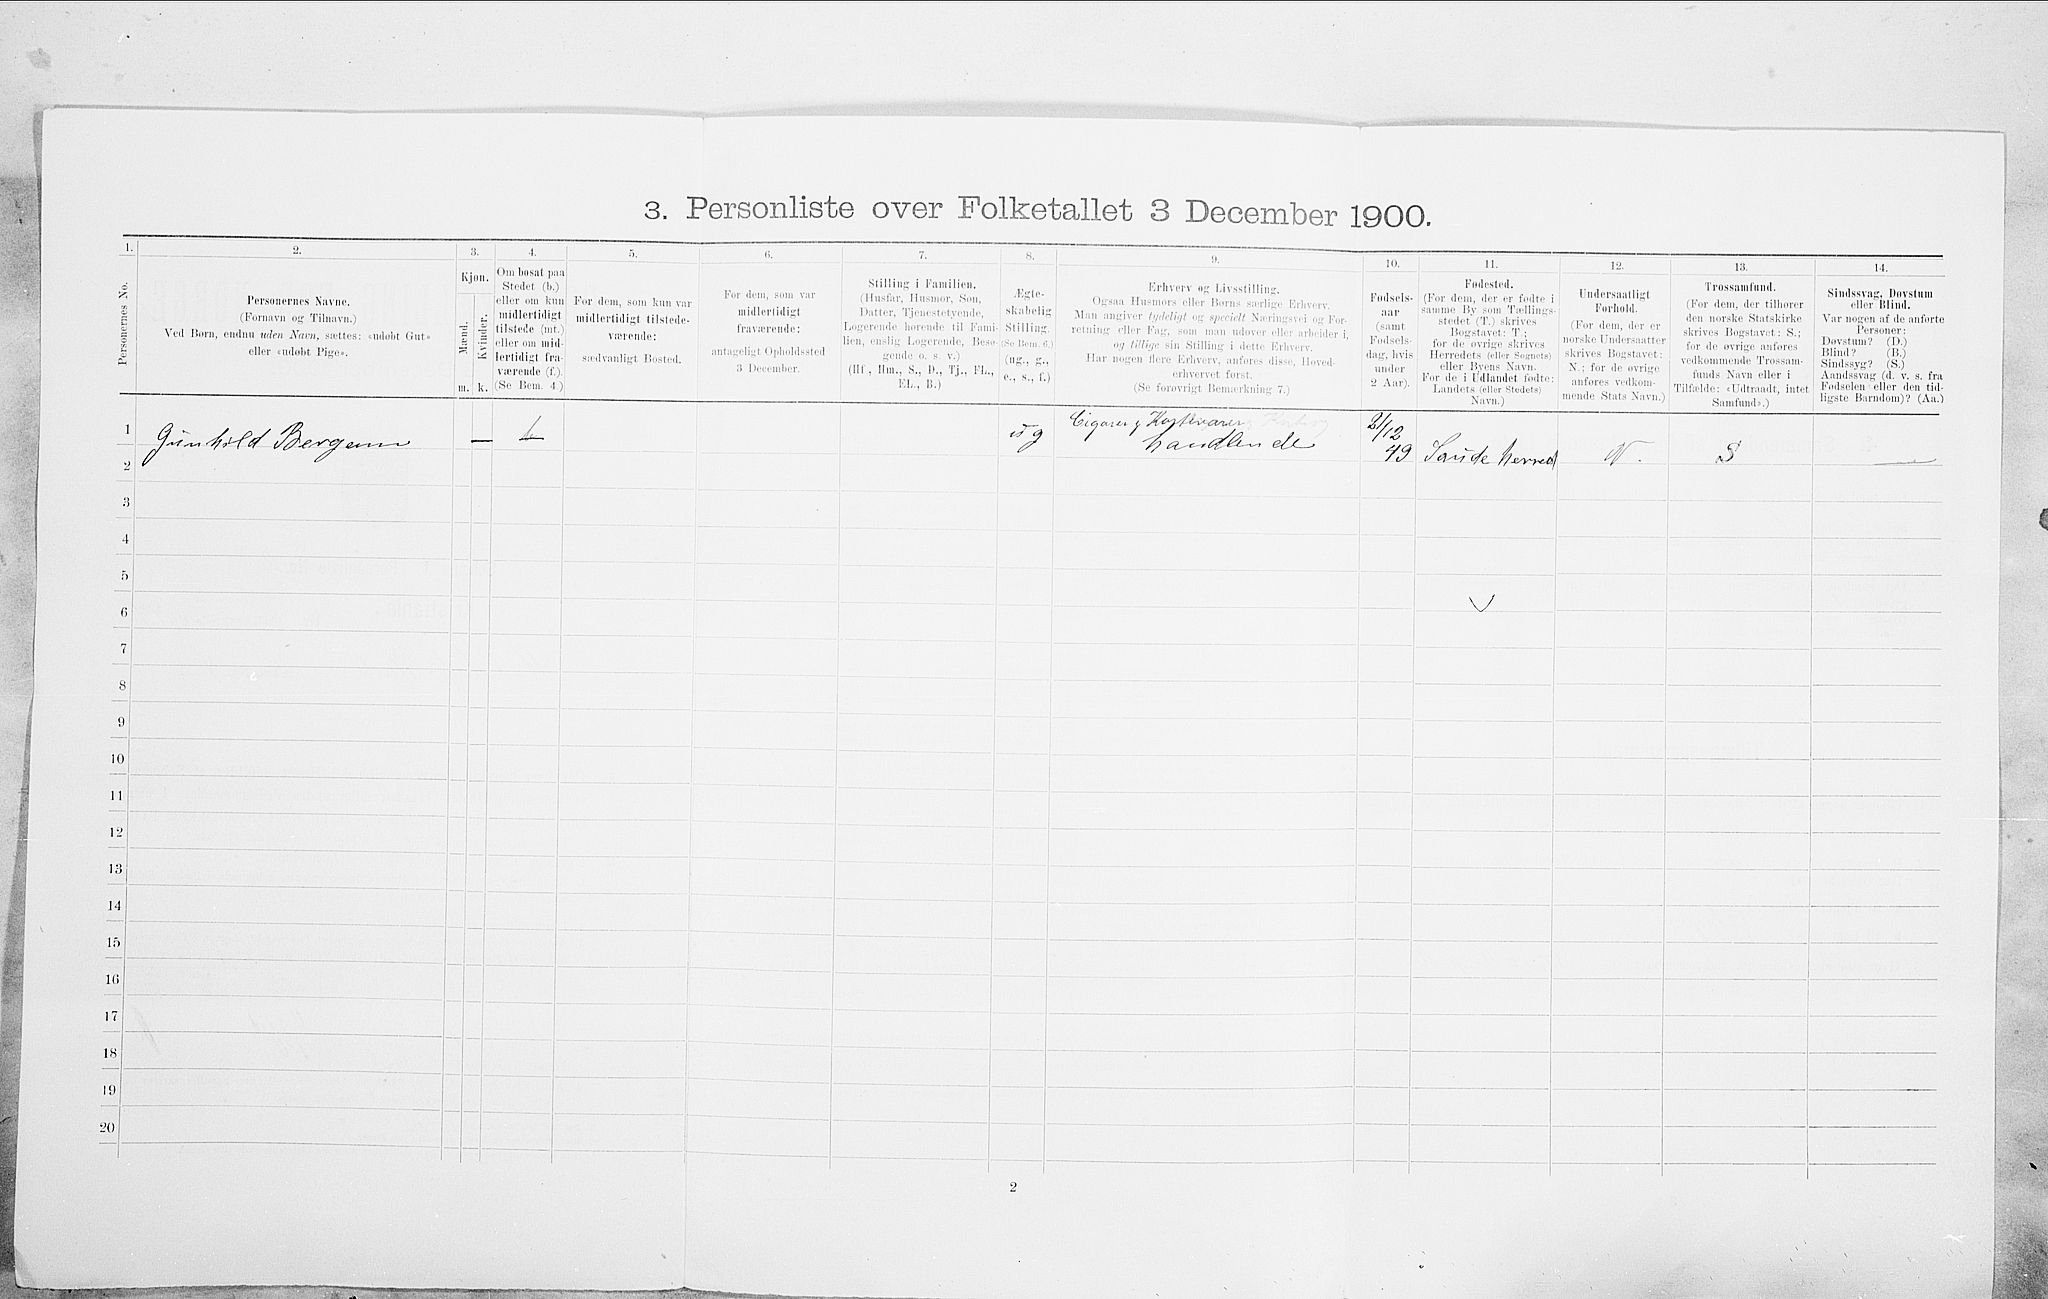 3. Personliste over Folketallet 3 December 1900.
1. 2. 3. 4. 5. 6. 7. 8. 9. 10. 11. 12. 13. 14.
Personernes No.
Personernes Navne.
(Fornavn og Tilnavn.)
Ved Børn, endnu uden Navn, sættes: «udøbt Gut»
eller «udøbt Pige».
Kjøn.
Mænd.
Kvinder.
m. k.
Om bosat paa
Stedet (b.)
eller om kun
midlertidigt
tilstede (mt.)
eller om mid-
lertidigt fra-
værende (f.).
(Se Bem. 4.)
For dem, som kun var
midlertidigt tilstede-
værende:
sædvanligt Bosted.
For dem, som var
midlertidigt
fraværende:
antageligt Opholdssted
3 December.
Stilling i Familien.
(Husfar, Husmor, Søn,
Datter, Tjenestetyende,
Logerende hørende til Fami-
lien, enslig Logerende, Besø-
gende o. s. v.)
(Hf., Hm., S., D., Tj., FL.,
EL., B.)
Ægte-
skabelig
Stilling.
(Se Bem. 6.)
(ug., g.,
e., s., f.)
Erhverv og Livsstilling.
Ogsaa Husmors eller Børns særlige Erhverv.
Man angiver tydeligt og specielt Næringsvei og For-
retning eller Fag, som man udøver eller arbeider i,
og tillige sin Stilling i dette Erhverv.
Har nogen flere Erhverv, anføres disse, Hoved-
erhvervet først.
(Se forøvrigt Bemærkning 7.)
Fødsels-
aar
(samt
Fødsels-
dag, hvis
under
2 Aar).
Fødested.
(For dem, der er fødte i
samme By som Tællings-
stedet (T.) skrives
Bogstavet: T;
for de øvrige skrives
Herredets (eller Sognets)
eller Byens Navn.
For de i Udlandet fødte:
Landets (eller Stedets)
Navn.)
Undersaatligt
Forhold.
(For dem, der er
norske Undersaatter
skrives Bogstavet:
N.; for de øvrige
anføres vedkom-
mende Stats Navn.)
Trossamfund.
(For dem, der tilhører
den norske Statskirke
skrives Bogstavet: S.;
for de øvrige anføres
vedkommende Trossam-
funds Navn eller i
Tilfælde: «Udtraadt, intet
Samfund».)
Sindssvag, Døvstum
eller Blind.
Var nogen af de anførte
Personer:
Døvstum? (D.)
Blind? (B.)
Sindssyg? (S.)
Aandssvag (d. v. s. fra
Fødselen eller den tid-
ligste Barndom)? (Aa.)
1 Gunhild Bergann — b ug Cigarer g Kortevarer handlende 21/12 49 Saude herred N. S —
2
3
4
5
6
7
8
9
10
11
12
13
14
15
16
17
18
19
20
2